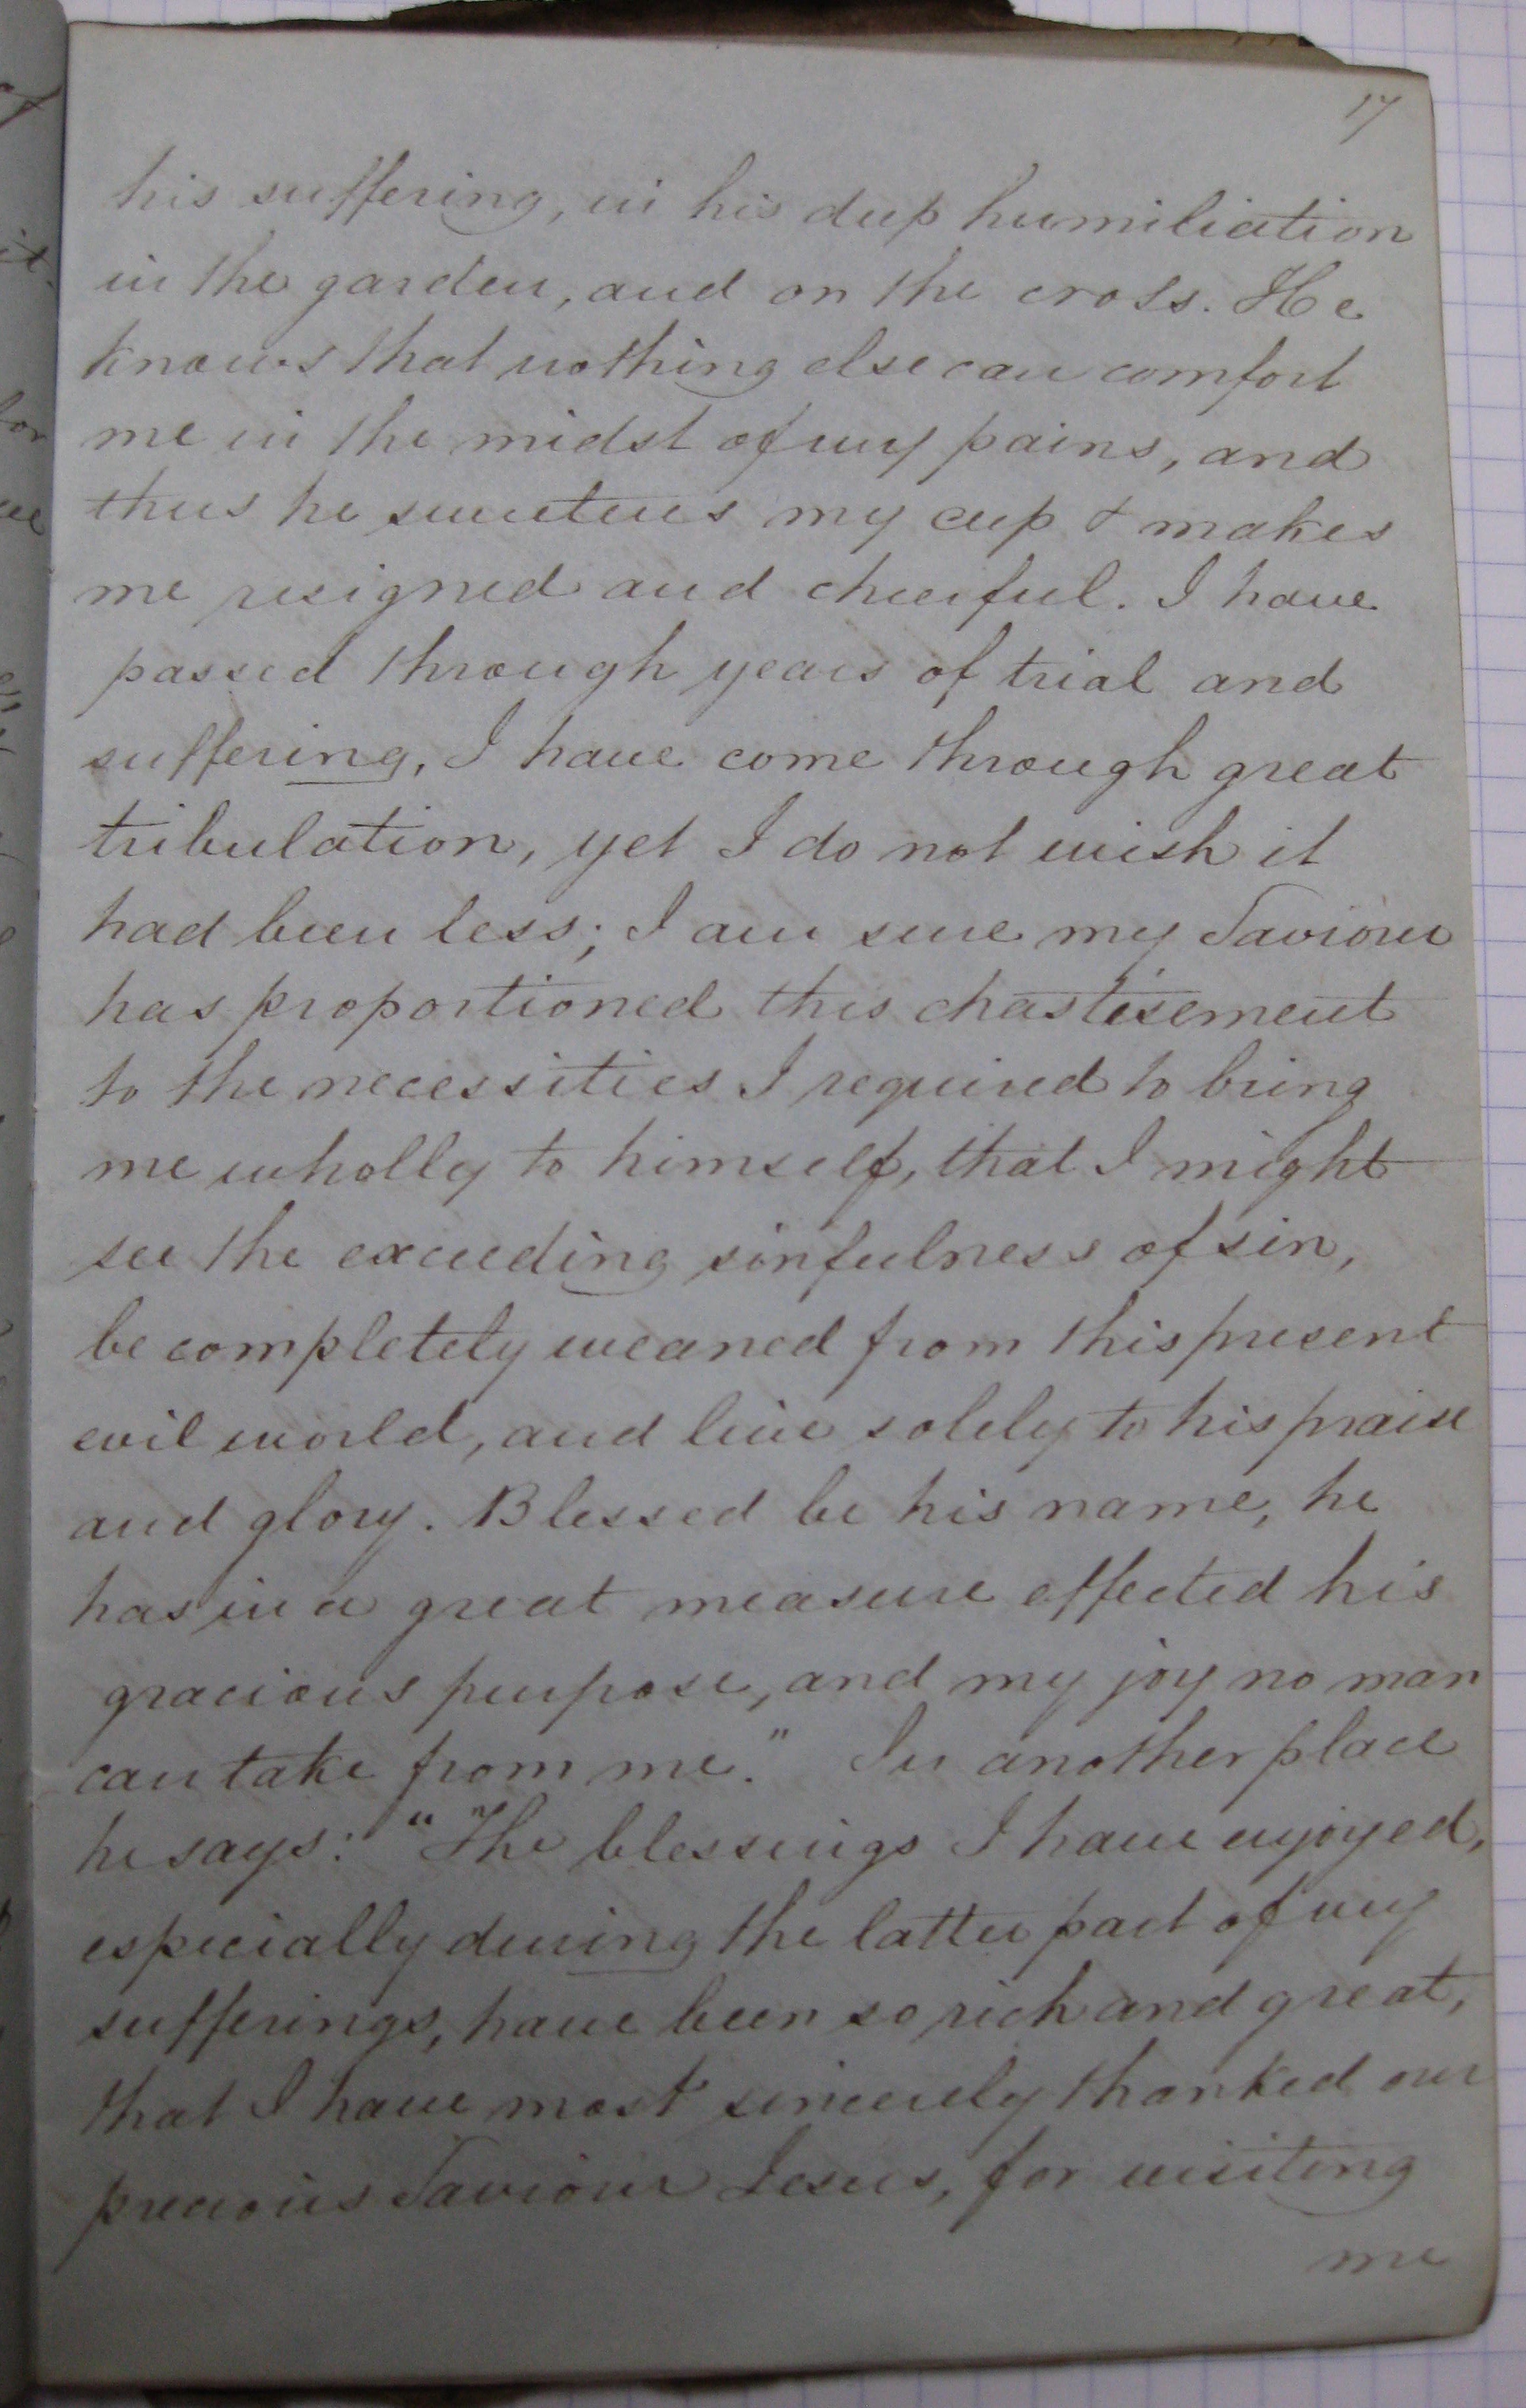 17
his suffering, in his deep humiliation
in the garden, and on the cross. He
knows that nothing else can comfort
me in the midst of my pains, and
thus he sweetens my cup & makes
me resigned and cheerful. I have
passed through years of trial and
suffering, I have come through great
tribulation, yet I do not wish it
had been less; I am sure my Saviour
has proportioned this chastisement
to the necessities I required to bring
me wholly to himself, that I might
see the exceeding sinfulness of sin,
be completely weaned from this present
evil world, and live solely to his praise
and glory. Blessed be his name, he
has in a great measure effected his
gracious purpose, and my joy no man
can take from me." In another place
he says: "The blessings I have enjoyed,
especially during the latter part of my
sufferings, have been so rich and great,
that I have most sincerely thanked our
precious Saviour Jesus, for visiting
me